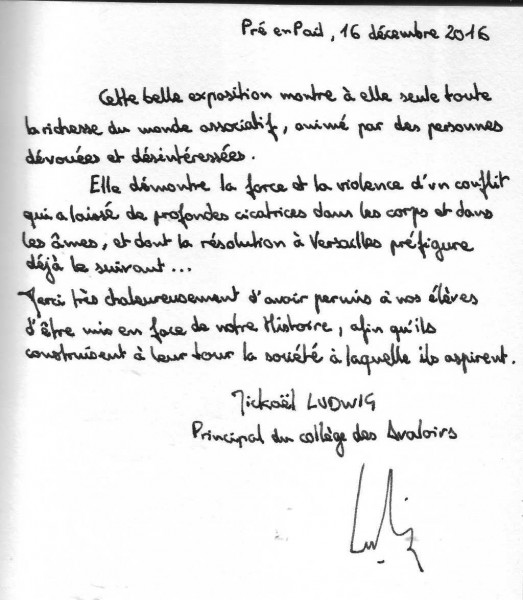 Pré en Pail, 16 décembre 2016
Cette belle exposition montre à elle seule toute
la richesse du monde associatif, animé par des personnes
dévouées et désintéressées.
Elle démontre la force et la violence d'un conflit
qui a laissé de profondes cicatrices dans les corps et dans
les âmes, et dont la résolution à Versailles préfigure
déjà le suivant...
Merci très chaleureusement d'avoir permis à nos élèves
d'être mis en face de notre Histoire, afin qu'ils
construisent à leur tour la société à laquelle ils aspirent.
Mickaël LUDWIG
Principal du collège des Avaloirs